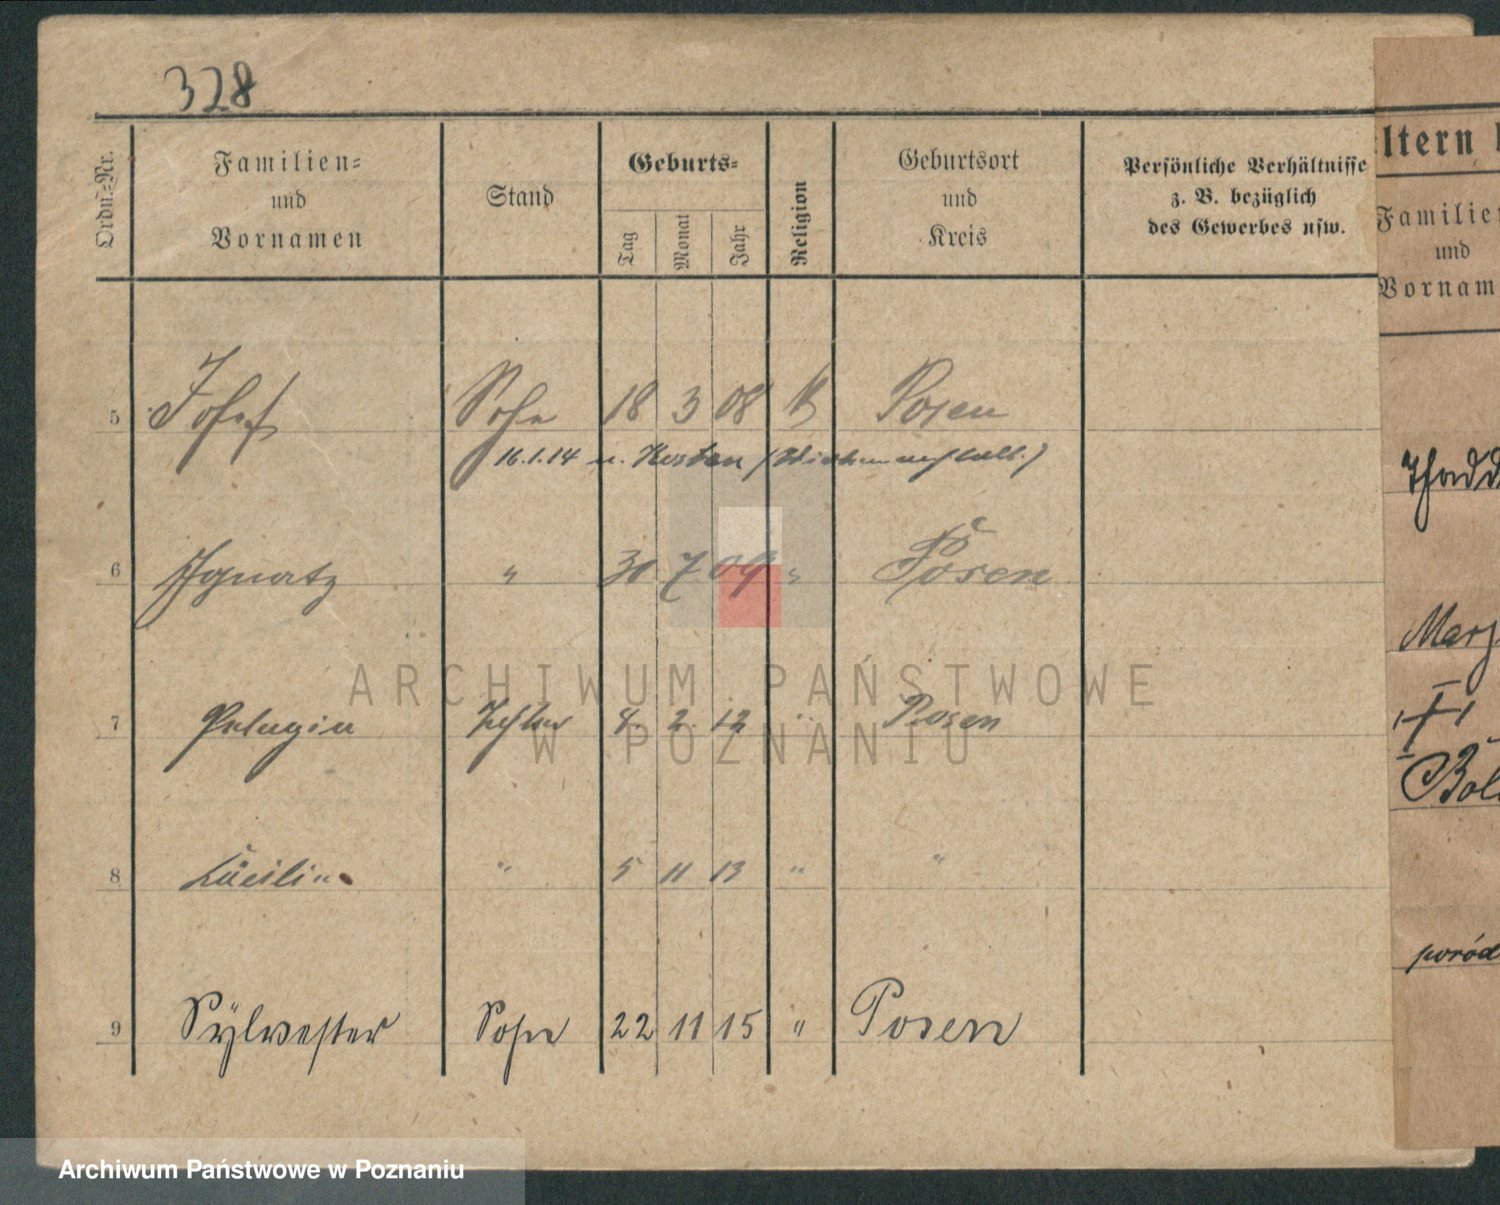 328
Ordn.-Nr.
Familien-
und
Vornamen
Stand
Geburts-
Tag
Monat
Jahr
Religion
Geburtsort
und
Kreis
Persönliche Verhältnisse
z. B. bezüglich
des Gewerbes usw.
ltern
Familien
und
Vornam
5 Josef Sohn 18 3 08 K Posen
16.1.14 n. Kosten
6 Ignatz " 30 7 09 " Posen
7 Pelagia Tochter 8. 2. 12 " Posen
8 Cäcilia " 5 11 13 " "
9 Sylvester Sohn 22 11 15 " Posen
Thadd
Marj
Bol
poród
ARCHIWUM PAŃSTWOWE
W POZNANIU
Archiwum Państwowe w Poznaniu